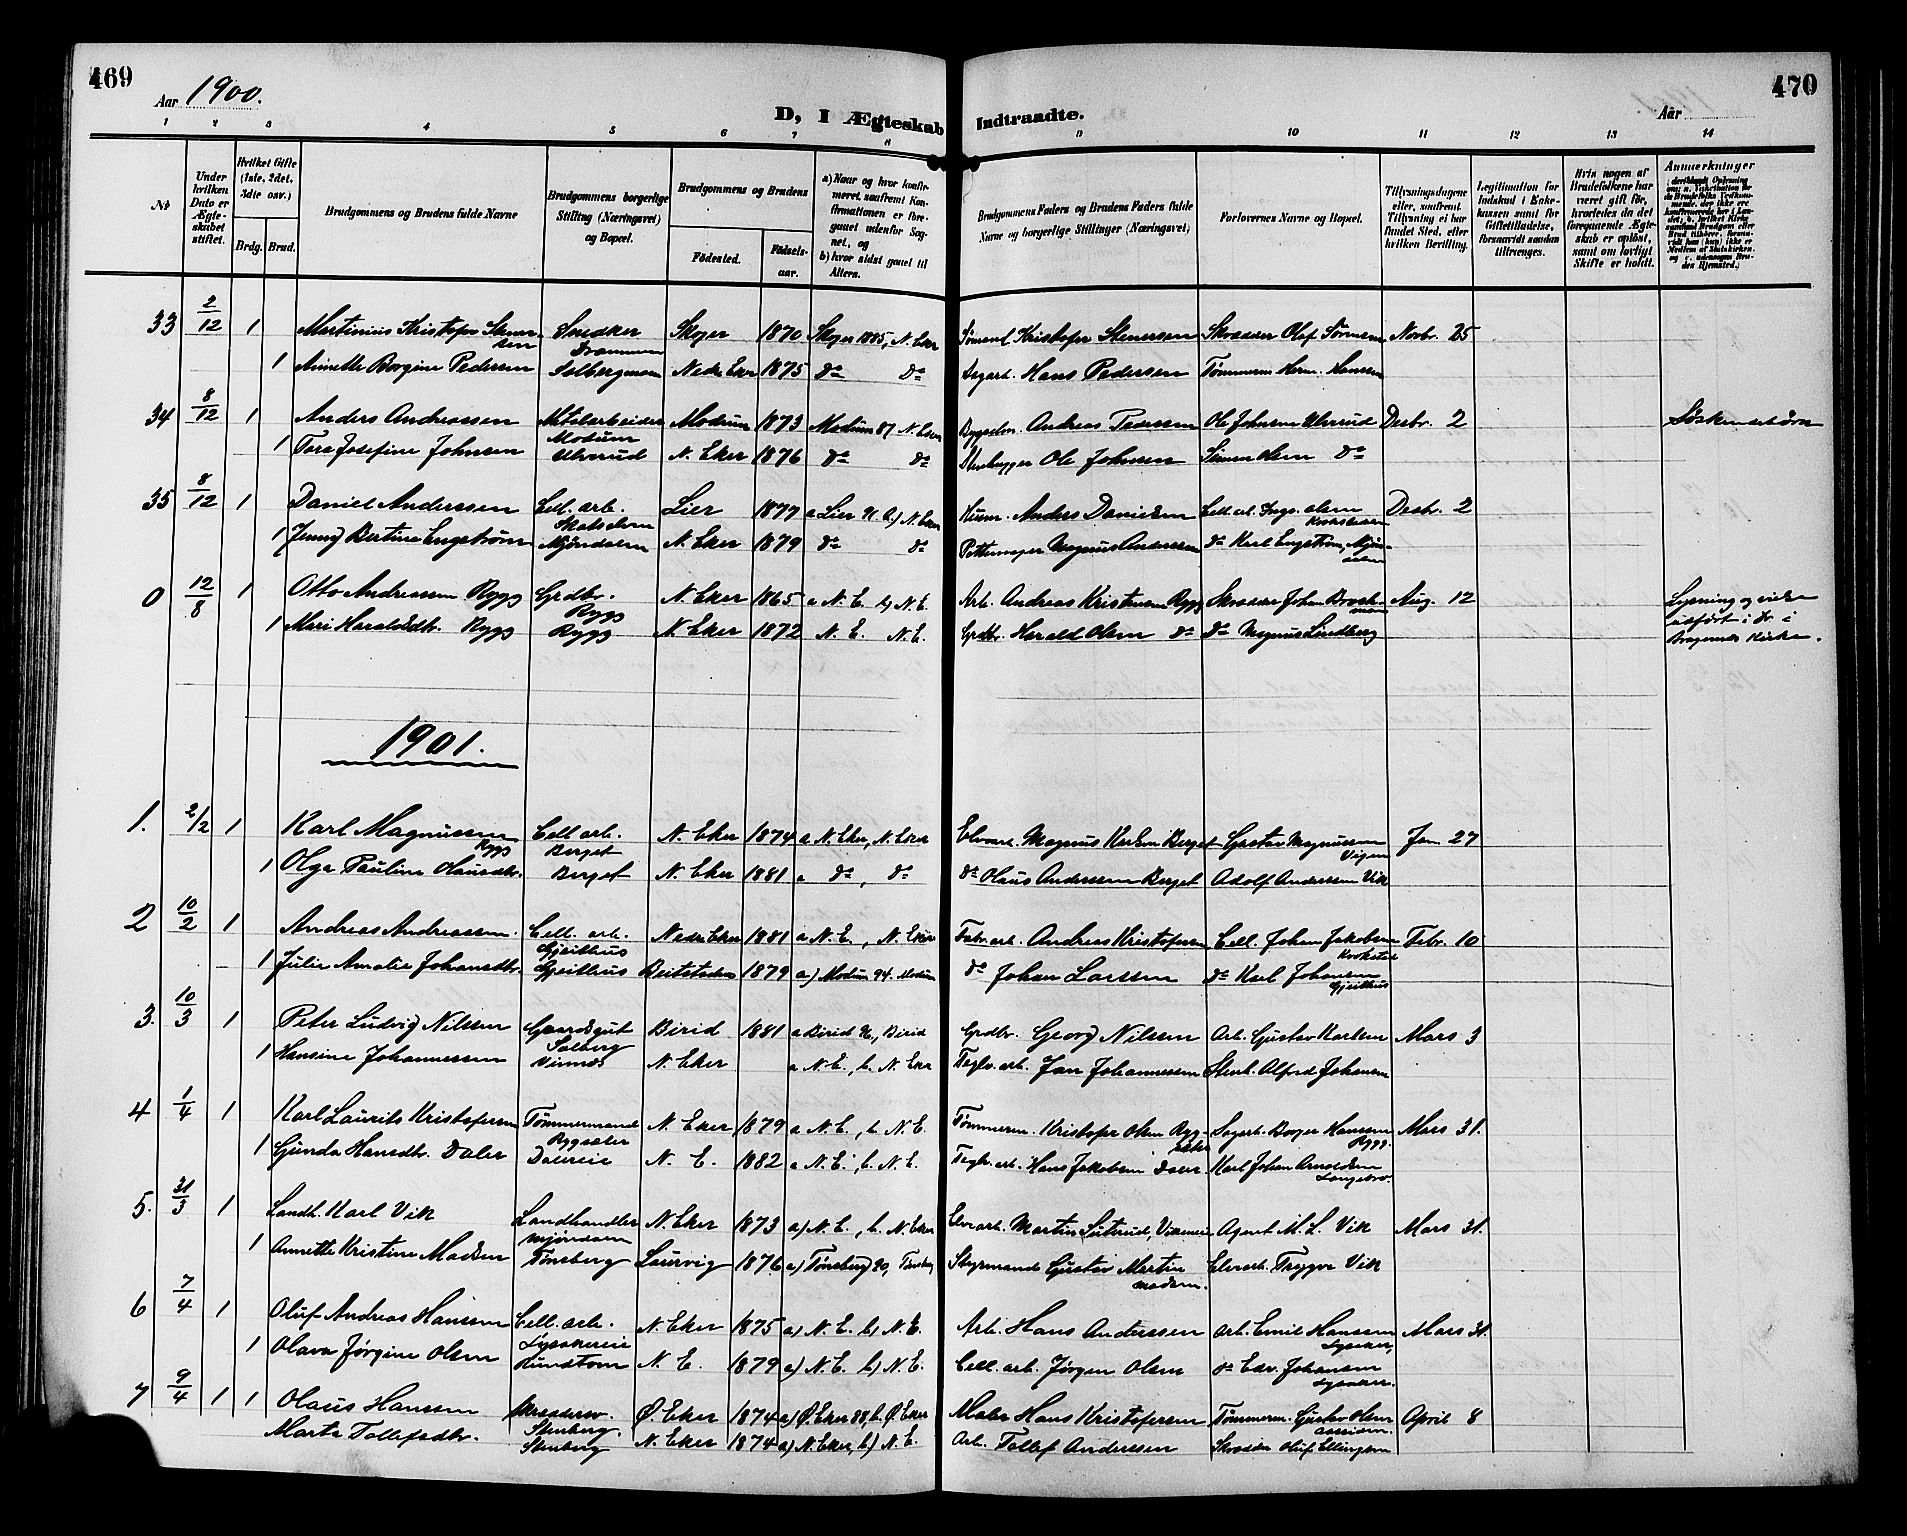 469
Aar 1900.
D, I Ægteskab Indtraadte.
Aar
470
1 2 3 4 5 6 7 8 9 10 11 12 13 14
No
Under hvilken Dato er Ægteskabet stiftet.
Hvilket Gifte (1ste, 2det, 3die osv.)
Brdg. Brud.
Brudgommens og Brudens fulde Navne
Brudgommens borgerlige Stilling (Næringsvei) og Bopæl.
Brudgommens og Brudens
Fødested. Fødselsaar.
a) Naar og hvor konfirmeret, samt om Konfirmationen er foregaaet udenfor Sognet, og
b) hvor sidst gaaet til Alters.
Brudgommens Faders og Brudens Faders fulde Navne og borgerlige Stillinger (Næringsvei)
Forlovernes Navne og Bopæl.
Legitimation for Indskud i Enkekassen samt for Giftetilladelse, forsaavidt saadan tiltrænges.
Hvis nogen af Brudefolkene har været gift før, hvorledes da det foregaaende Ægteskab er opløst, samt om lovligt Skifte er holdt.
Anmerkninger
33 2/12 1 Martinius Kristofer Stenersen Snedker Drammen Skoger 1870 Skoger 1885, N. Eker Kristofer Stenersen Skrædder Olaf Sørensen Novbr. 25
1 Annette Borgine Pedersen Solbergmoen Nedre Eker 1875 do do Sagarb. Hans Pedersen Tømmerm. Herm. Hansen
34 8/12 1 Anders Andreassen Metalarbeider Modum Modum 1873 Modum 87 N. Eker Andreas Pedersen Ole Johnsen Ulverud Desbr. 2 Søskendebørn
1 Tora Josefine Johnsen Ulverud N. Eker 1876 do do Stenhugger Ole Johnsen Simen Olsen do
35 8/12 1 Daniel Anderssen Cell. arb. Lier 1877 a Lier 91 b) N. Eker Husm. Anders Danielsen Cell. arb. Olsen Krokstad Desbr. 2
1 Jenny Bertine Engstrøm Mjøndalen N. Eker 1879 do do Pottemager Magnus Anderssen do Karl Engstrøm, Mjøndalen
0 12/8 1 Otto Andreassen Rygg Grdbr. Rygg N. Eker 1865 a N. E. b) N. E. Arb. Andreas Kristensen Rygg Skrædder Johan Aug. 12 Lysning og vielse udført i Dr. i Bragernes Kirke.
1 Mari Haraldsdtr. Rygg Rygg N. Eker 1872 N. E. N. E. Grdbr. Harald Olsen do do Magnus Lindberg
1901.
1. 2/2 1 Karl Magnussen Cell. arb. Berget N. Eker 1874 a N. Eker, N. Eker Magnus Karlsen Berget Gustav Magnussen Jan. 27
1 Olga Pauline Olausdtr. Rygg Berget N. Eker 1881 a do, do do Olaus Anderssen Berget Adolf Anderssen Vik
2 10/2 1 Andreas Andreassen Cell. arb. Gjeithus Nedre Eker 1881 a N. E., N. Eker Fabr. arb. Andreas Kristofersen Cell. Johan Jakobsen Krokstad Febr. 10
1 Julie Amalie Johansdtr. Gjeithus Beitstaden 1879 a) Modum 94. Modum do Johan Larssen do Karl Johansen Gjeithus
3. 10/3 1 Peter Ludvig Nilssen Gaardsgut Solberg Birid 1881 a Birid 96, Birid Grdbr. Georg Nilssen Arb. Gustav Karlsen Mars 3
1 Hansine Johannessen N. Eker a N. E., b. N. Eker Teglv. arb. Jan Johannessen Stenh. Alfred Johansen
4 1/4 1 Karl Laurits Kristofersen Tømmermand Rygsæter N. Eker 1879 a N. E., b. N. E. Tømmerm. Kristofer Olsen Rygsæter Sagarb. Borger Hansen Rygg. Mars 31.
1 Gunda Hansdtr. Daler Dalereie N. E. 1882 a N. E., b. N. E. Teglv. arb. Hans Jakobsen Daler. Karl Johan Arnoldsen Langebro.
5. 31/3 1 Landh. Karl Vik Landhandler Mjøndalen N. Eker 1873 a) N. E., b. N. Eker Elvearb. Martin Suterud, Vikeneie Agent M. L. Vik Mars 31.
1 Annette Kristine Madsen Tønsberg Laurvig 1876 a) Tønsberg 90, Tønsberg Styrmand Gustav Martin Madsen. Elvearb. Trygve Vik
6 7/4 1 Oluf Andreas Hanssen Cell. arb. Lysakereie N. Eker 1875 a) N. E. b) N. E. Arb. Hans Anderssen Arb. Emil Hanssen Lysaker, Mars 31.
1 Olava Jørgine Olsen Rundtom N. E. 1879 a) N. E. b) N. E. Cell. arb. Jørgen Olsen do Edv. Johansen Lysaker.
7 9/4 1 1 Olaus Hanssen Skræddersv. Stenberg. Ø. Eker 1874 a) Ø. Eker 88, b. Ø. Eker Maler Hans Kristofersen Tømmerm. Gustav Olsen April 8
Marte Tollefsdtr. Stenberg N. Eker 1874 a) N. Eker, b) N. E. Arb. Tollef Anderssen Skrædder Oluf Ellingsen